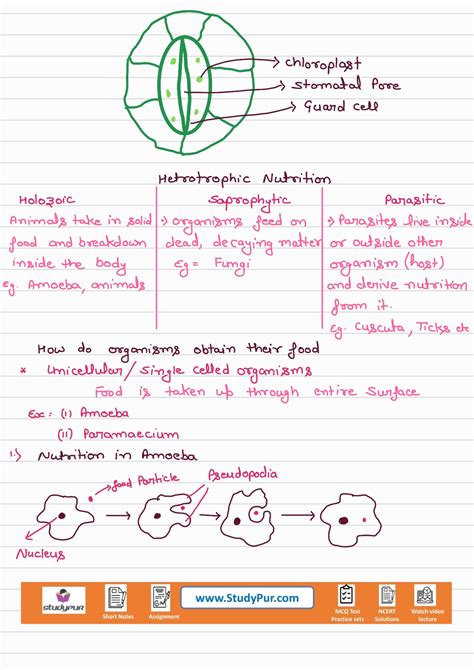 → Chloroplast
→ Stomatal Pore
→ Guard cell
Hetrotrophic Nutrition
Holozoic
Animals take in solid
food and breakdown
inside the body
Eg. Amoeba, animals
Saprophytic
→ Organisms feed on
dead, decaying matter
Eg = Fungi
Parasitic
→ Parasites live inside
or outside other
organism (host)
and derive nutrition
from it.
Eg. Cuscuta, Ticks etc
How do organisms obtain their food
* Unicellular / Single celled organisms
Food is taken up through entire surface
Ex: (i) Amoeba
(ii) Paramaecium
1.) Nutrition in Amoeba
food Particle
Pseudopodia
Nucleus
studypur
Short Notes
Assignment
www.StudyPur.com
MCQ Test
Practice sets
NCERT
Solutions
Watch video
lecture